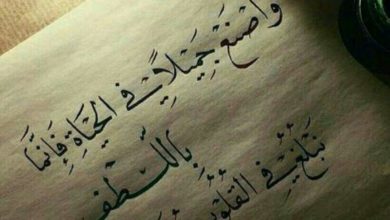 وَاصْنَعْ جَمِيلاً فِي الحَيَاةِ فَإِنَّمَا
بِاللُّطْفِ
تَبْلُغُ فِي القُلُوبِ